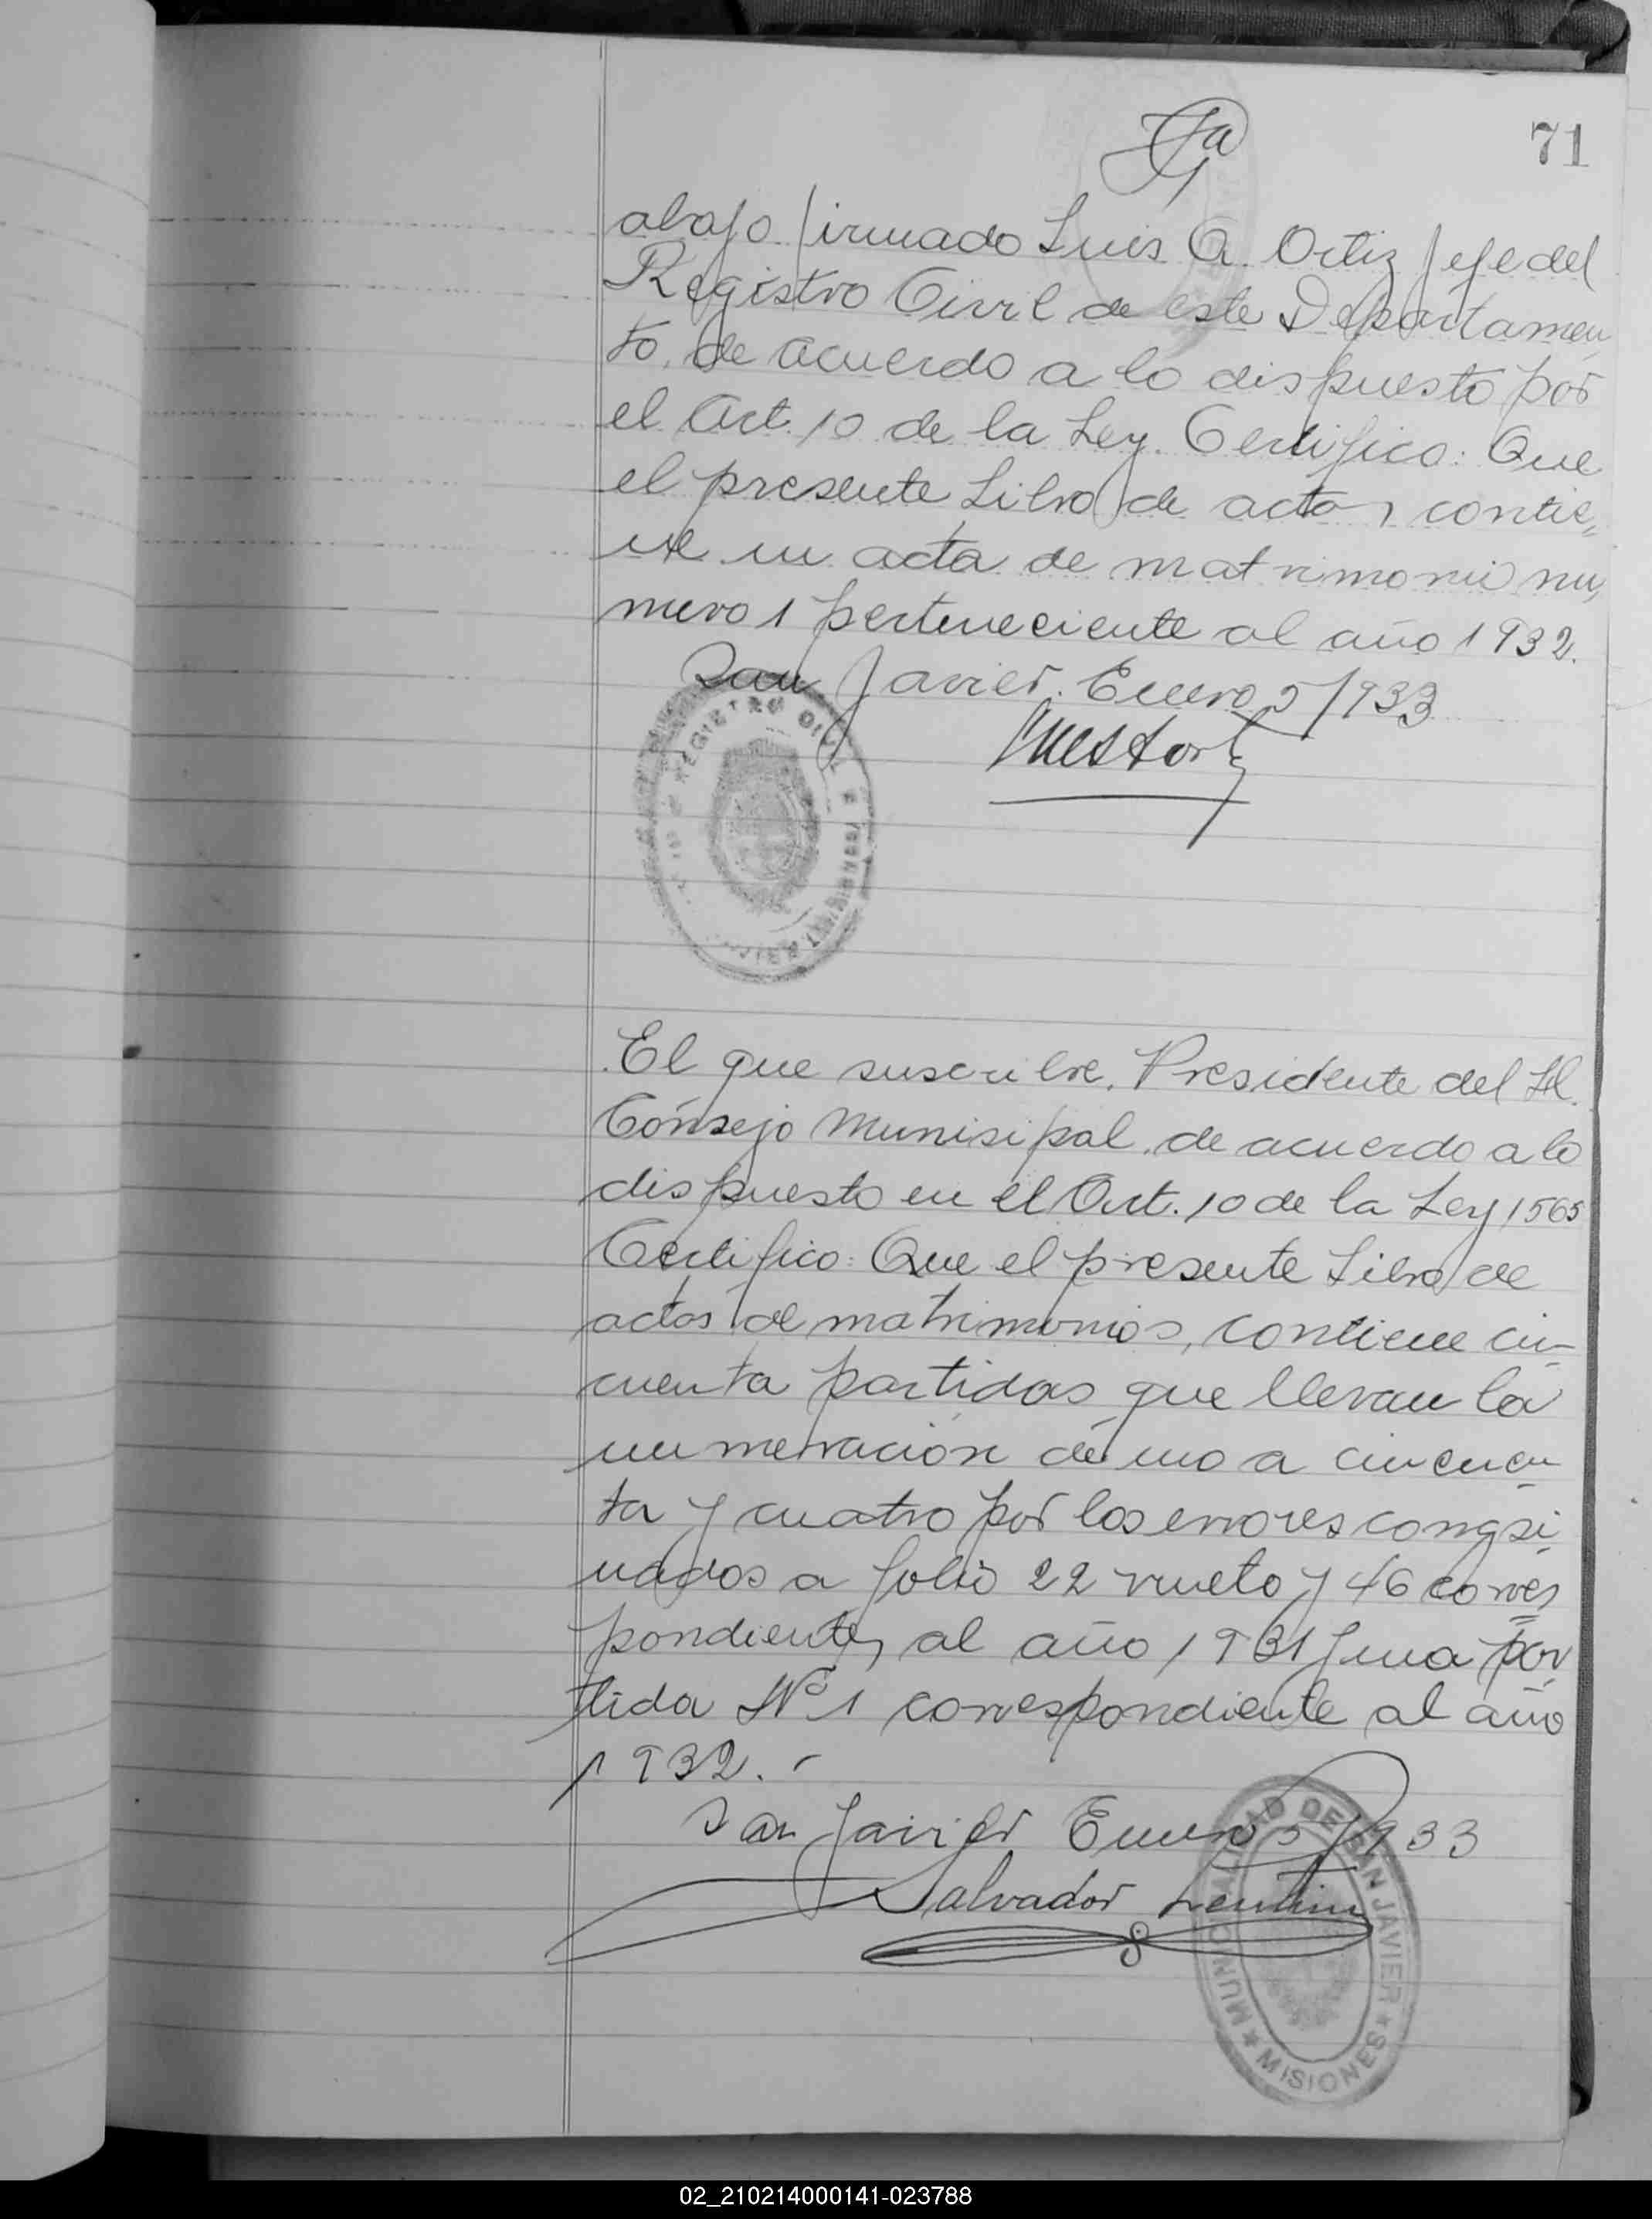 71
abajo firmado Luis A. Ortiz Jefe del
Registro Civil de este Departamen
to, de acuerdo a lo dispuesto por
el Art. 10 de la Ley. Certifico: Que
el presente Libro de actas contie=
ne un acta de matrimonio nu,
mero 1 perteneciente al año 1932.
San Javier. Enero 5/933
REGISTRO CIVIL
El que suscribe, Presidente del H.
Consejo Munisipal, de acuerdo a lo
dispuesto en el Art. 10 de la Ley 1565
Certifico: Que el presente Libro de
actas de matrimonios, contiene cin-
cuenta partidas que llevan la
numeración de uno a cincuen
ta y cuatro por los errores congsi
nados a folio 22 vuelto y 46 corres
pondientes al año 1931 y una par
tida Nº 1 correspondiente al año
1932.-
San Javier Enero 5/933
Salvador Lentini
MUNICIPALIDAD DE SAN JAVIER
★ MISIONES ★
02_210214000141-023788